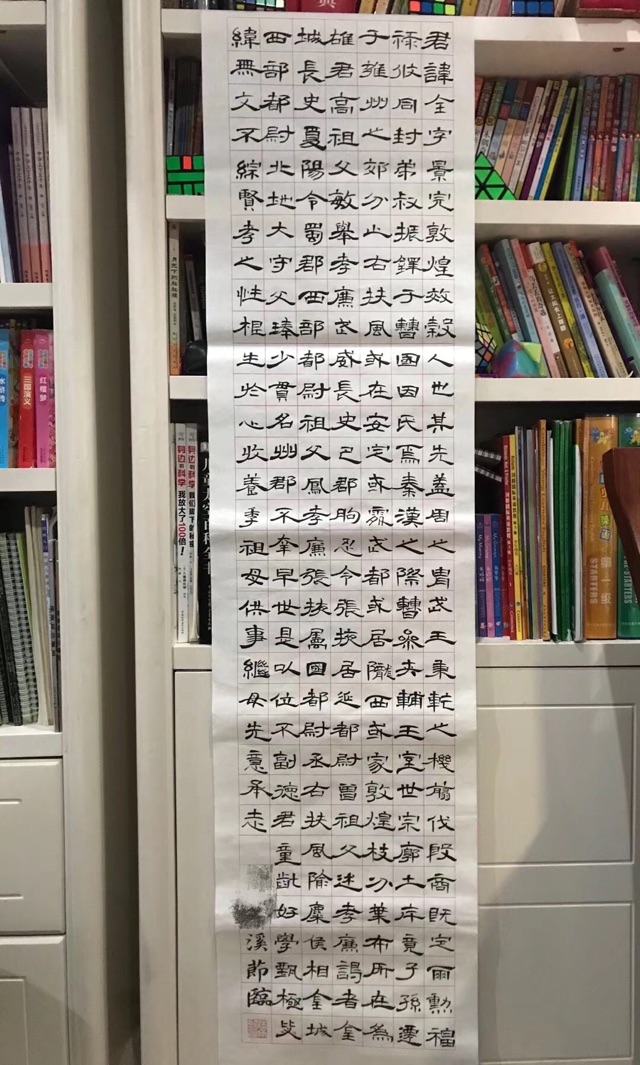 君諱全字景完敦煌效穀人也其先蓋周之胄武王秉乾之機翦伐殷商既定爾勳福
祿攸同封弟叔振鐸于曹國因氏焉秦漢之際曹參夾輔王室世宗廓土斥竟子孫遷
于雍州之郊分止右扶風或在安定或處武都或居隴西或家敦煌枝分葉布所在為
雄君高祖父敏舉孝廉武威長史巴郡朐忍令張掖居延都尉曾祖父述孝廉謁者金
城長史夏陽令蜀郡西部都尉祖父鳳孝廉張掖屬國都尉丞右扶風隃麋侯相金城
西部都尉北地大守父琫少貫名州郡不幸早世是以位不副德君童齔好學甄極毖
緯無文不綜賢孝之性根生於心收養季祖母供事繼母先意承志
溪節臨
水浒传
三国演义
红楼梦
身边的科学
我放大了100倍！
STARTERS
第一级